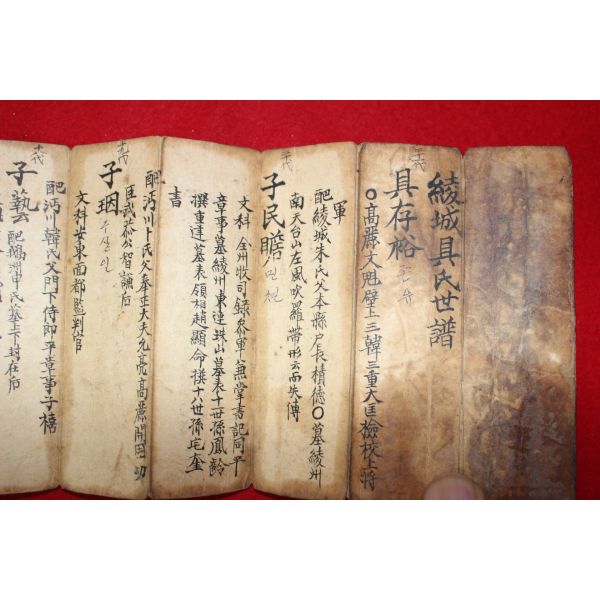 綾城具氏世譜
一代
具存裕
존유
〇高麗文魁壁上三韓三重大匡檢校上將
軍
配綾城朱氏父本縣戶長積德〇墓綾州
南天台山左風吹羅帶形云而失傳
二代
子民瞻
민첨
文科 全州牧司錄參軍兼掌書記同平
章事墓綾州東連珠山墓表十世孫鳳齡
撰重建墓表領相趙顯命撰十八世孫宅奎
書
配沔川卜氏父奉正大夫允亮高麗開國功
臣武恭公智謙后
子珚
文科安東面都監判官
子藝
配沔川韓氏父門下侍郎平章事子禧